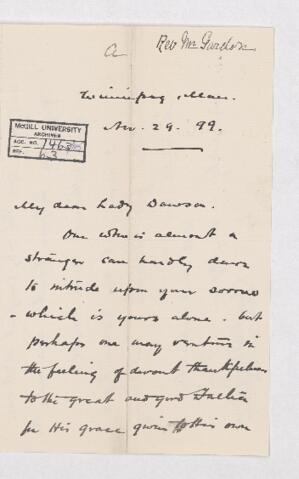 A
Rev Mr Gordon
Winnipeg, Man.
Nov. 29. 99.
McGILL UNIVERSITY
ARCHIVES
ACC. NO. 1463
REF. 63
My dear Lady Dawson.
One who is almost a
stranger can hardly dare
to intrude upon your sorrow
- which is yours alone. but
perhaps one may venture in
the feeling of devout thankfulness
to the great and good Father
for His grace given to His own